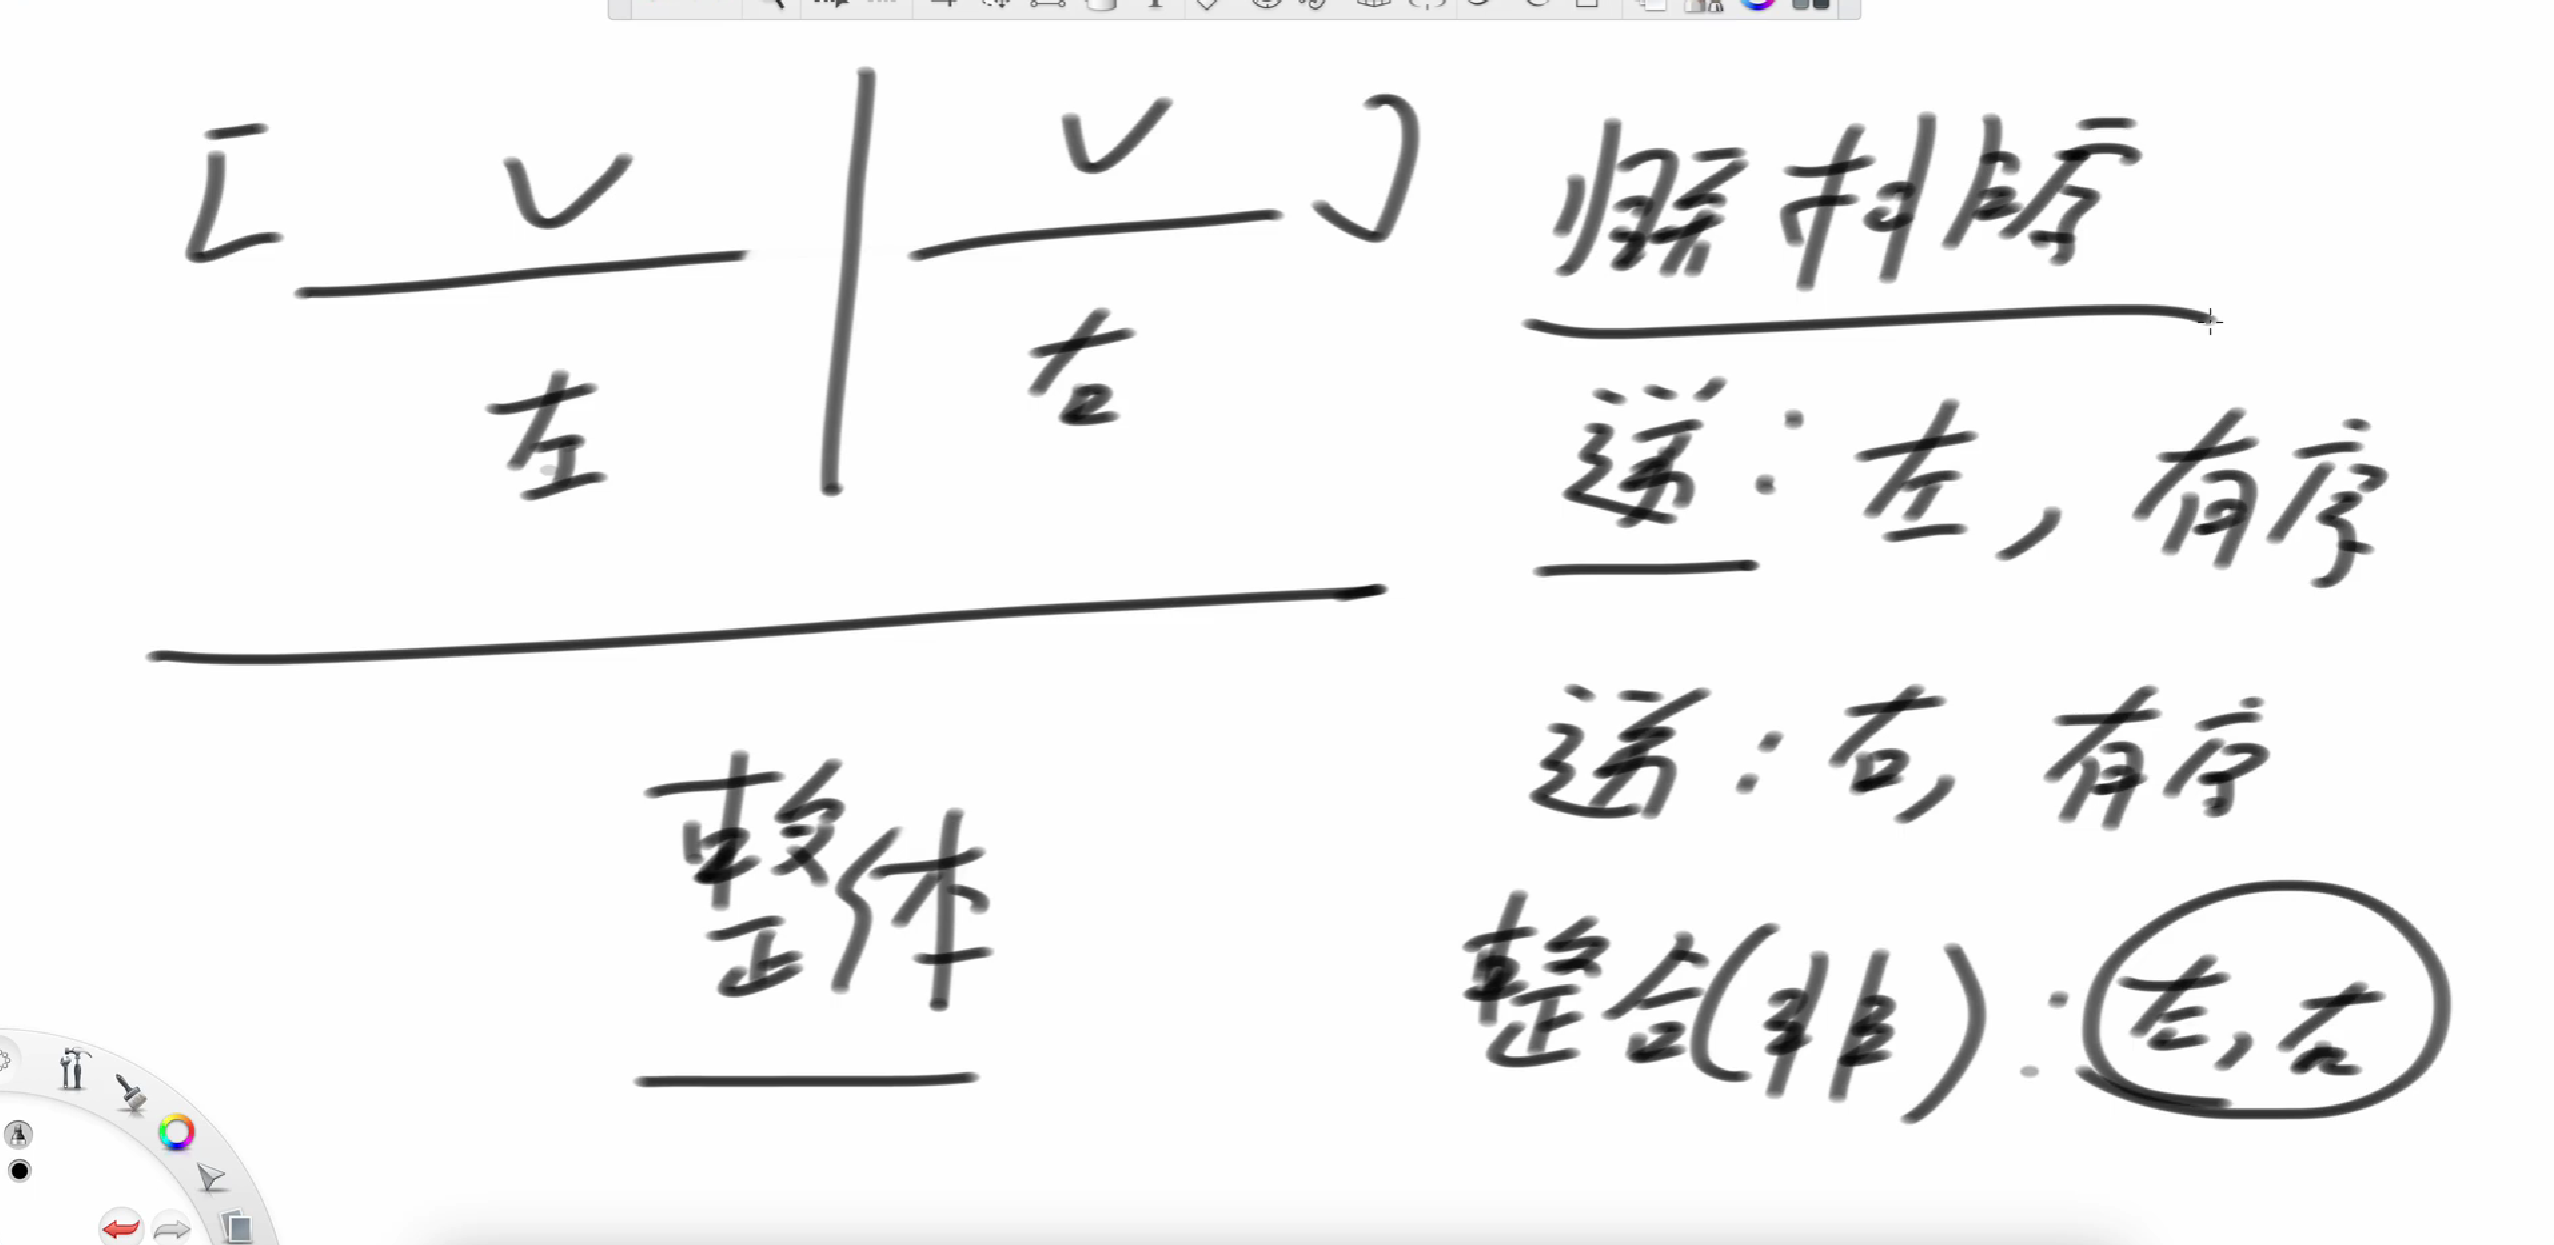 [ ]
左 右
整体
归并排序
递：左，有序
递：右，有序
整合(非)：左，右